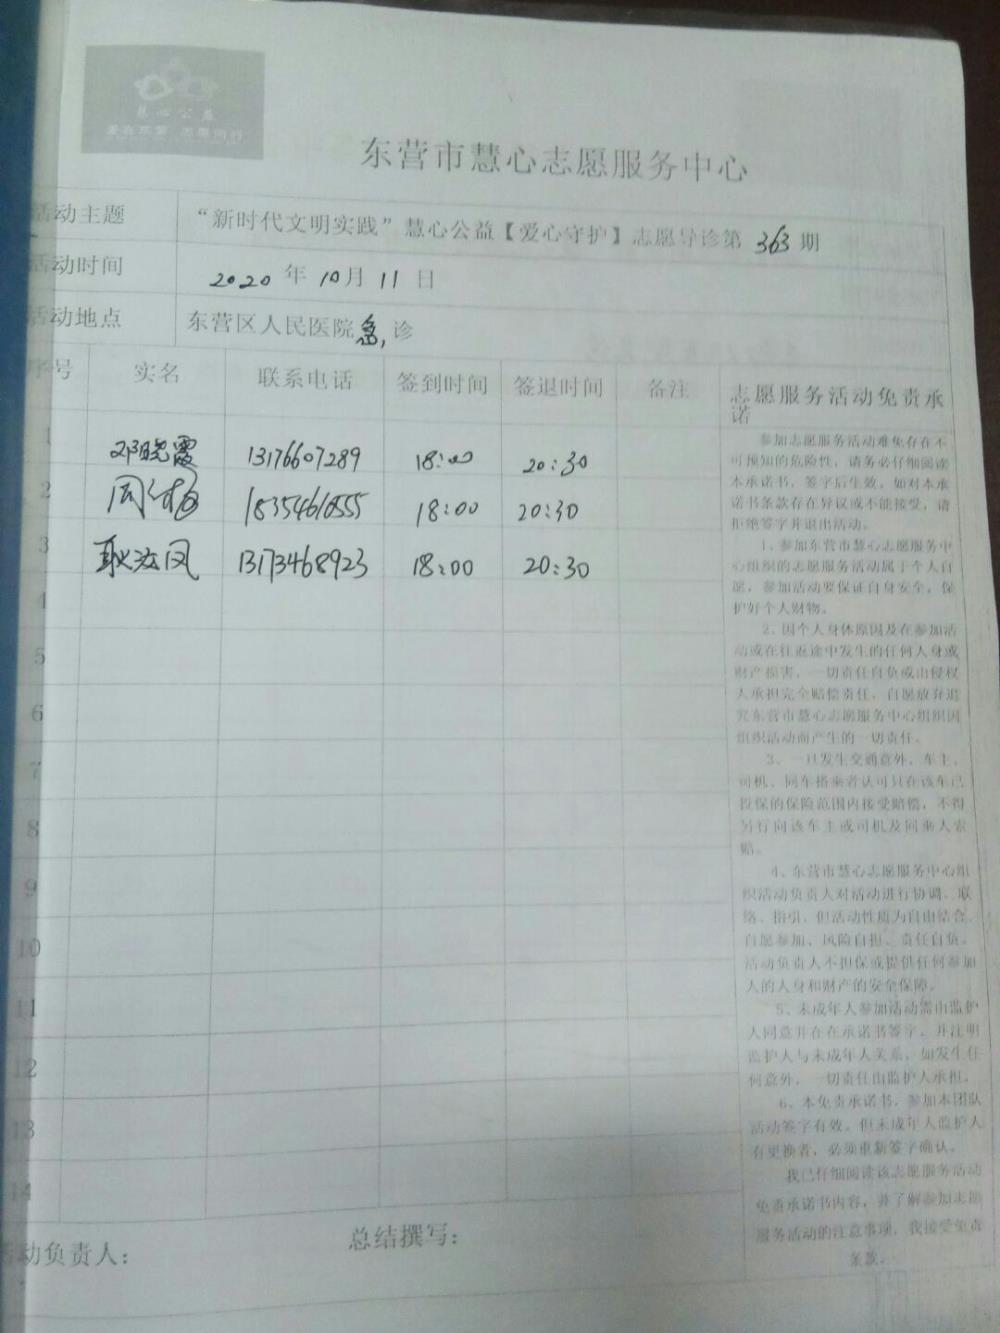 慧心公益
爱在东营 志愿同行
东营市慧心志愿服务中心
活动主题 “新时代文明实践”慧心公益【爱心守护】志愿导诊第 363 期
活动时间 2020 年 10 月 11 日
活动地点 东营区人民医院急诊
序号 实名 联系电话 签到时间 签退时间 备注
1 邓晓霞 13176607289 18:00 20:30
2 18354610555 18:00 20:30
3 13173468923 18:00 20:30
4
5
6
7
8
9
10
11
12
13
14
志愿服务活动免责承
诺
参加志愿服务活动难免存在不
可预知的危险性，请务必仔细阅读
本承诺书，签字后生效。如对本承
诺书条款存在异议或不能接受，请
拒绝签字并退出活动。
1、参加东营市慧心志愿服务中
心组织的志愿服务活动属于个人自
愿，参加活动要保证自身安全，保
护好个人财物。
2、因个人身体原因及在参加活
动或在往返途中发生的任何人身或
财产损害，一切责任自负或由侵权
人承担完全赔偿责任，自愿放弃追
究东营市慧心志愿服务中心组织因
组织活动而产生的一切责任。
3、一旦发生交通意外，车主、
司机、同车搭乘者认可只在该车已
投保的保险范围内接受赔偿，不得
另行向该车主或司机及同乘人索
赔。
4、东营市慧心志愿服务中心组
织活动负责人对活动进行协调、联
络、指引，但活动性质为自由结合、
自愿参加、风险自担、责任自负。
活动负责人不担保或提供任何参加
人的人身和财产的安全保障。
5、未成年人参加活动需由监护
人同意并在在承诺书签字，并注明
监护人与未成年人关系，如发生任
何意外，一切责任由监护人承担。
6、本免责承诺书，参加本团队
活动签字有效。但未成年人监护人
有更换者，必须重新签字确认。
我已仔细阅读该志愿服务活动
免责承诺书内容，并了解参加志愿
服务活动的注意事项，我接受免责
条款。
活动负责人： 总结撰写：